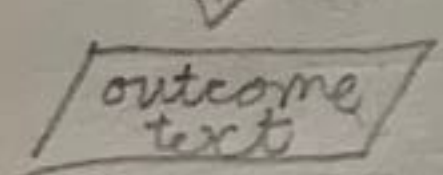 outcome
text